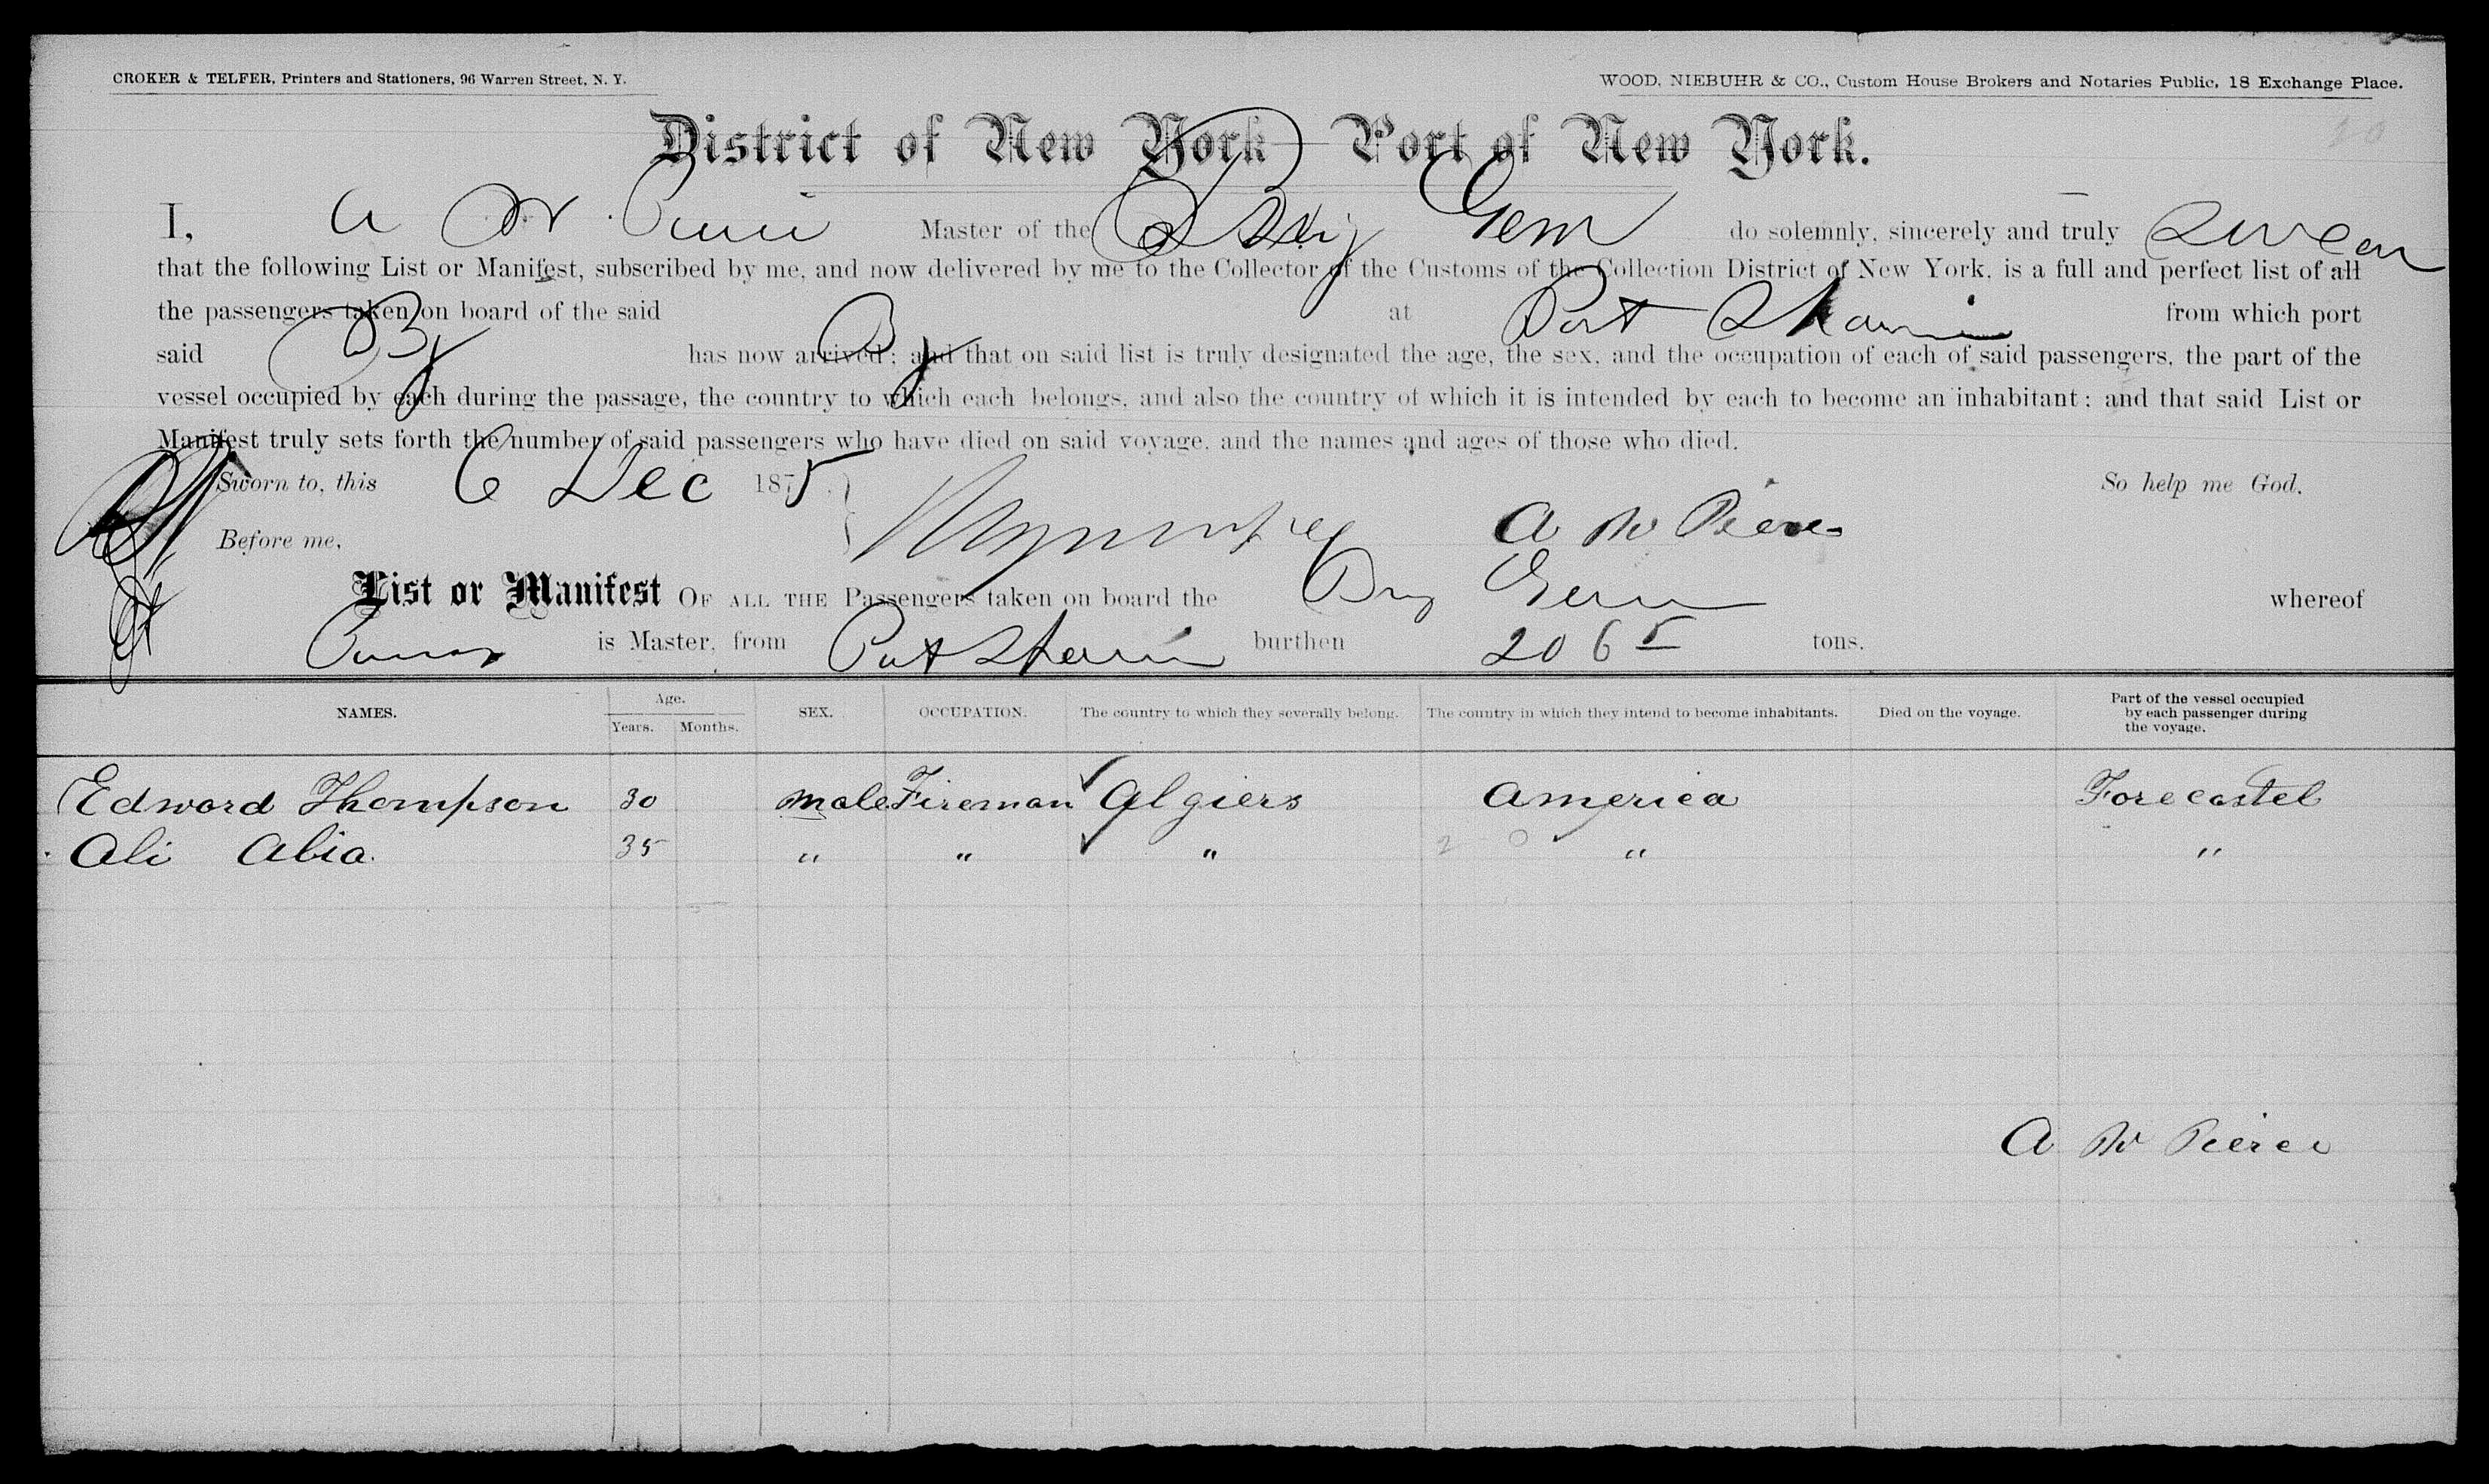 CROKER & TELFER, Printers and Stationers, 96 Warren Street, N. Y.
WOOD, NIEBUHR & CO., Custom House Brokers and Notaries Public, 18 Exchange Place.
20
District of New York — Port of New York.
I, A W Pierce Master of the Brig Gem do solemnly, sincerely and truly Swear
that the following List or Manifest, subscribed by me, and now delivered by me to the Collector of the Customs of the Collection District of New York, is a full and perfect list of all
the passengers taken on board of the said Bg at Port from which port
said Bg has now arrived; and that on said list is truly designated the age, the sex, and the occupation of each of said passengers, the part of the
vessel occupied by each during the passage, the country to which each belongs, and also the country of which it is intended by each to become an inhabitant; and that said List or
Manifest truly sets forth the number of said passengers who have died on said voyage, and the names and ages of those who died.
Sworn to, this 6 Dec 1875. So help me God.
Before me, A W Pierce
List or Manifest OF ALL THE Passengers taken on board the Brig Gem whereof
Pierce is Master, from Port burthen 206 5 tons.
NAMES. Age. Years. Months. SEX. OCCUPATION. The country to which they severally belong. The country in which they intend to become inhabitants. Died on the voyage. Part of the vessel occupied by each passenger during the voyage.
Edward Thompson 30 male Fireman Algiers America Forecastel
Ali Abia. 35 " " " 2 0 " "
A W Pierce